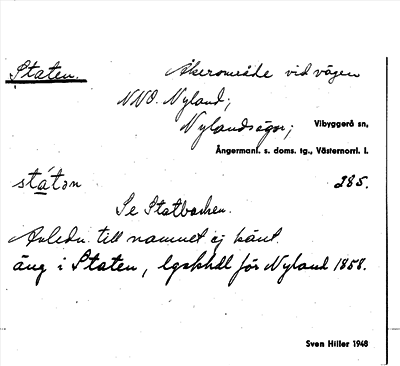 Staten. Åkerområde vid vägen
NNO. Nyland;
Nylandsägor; Vibyggerå sn,
Ångermanl. s. doms. tg., Västernorrl. l.
státən 285.
Se Statbacken.
Anledn. till namnet ej känt.
äng i Staten, lgskhdl för Nyland 1858.
Sven Hiller 1948